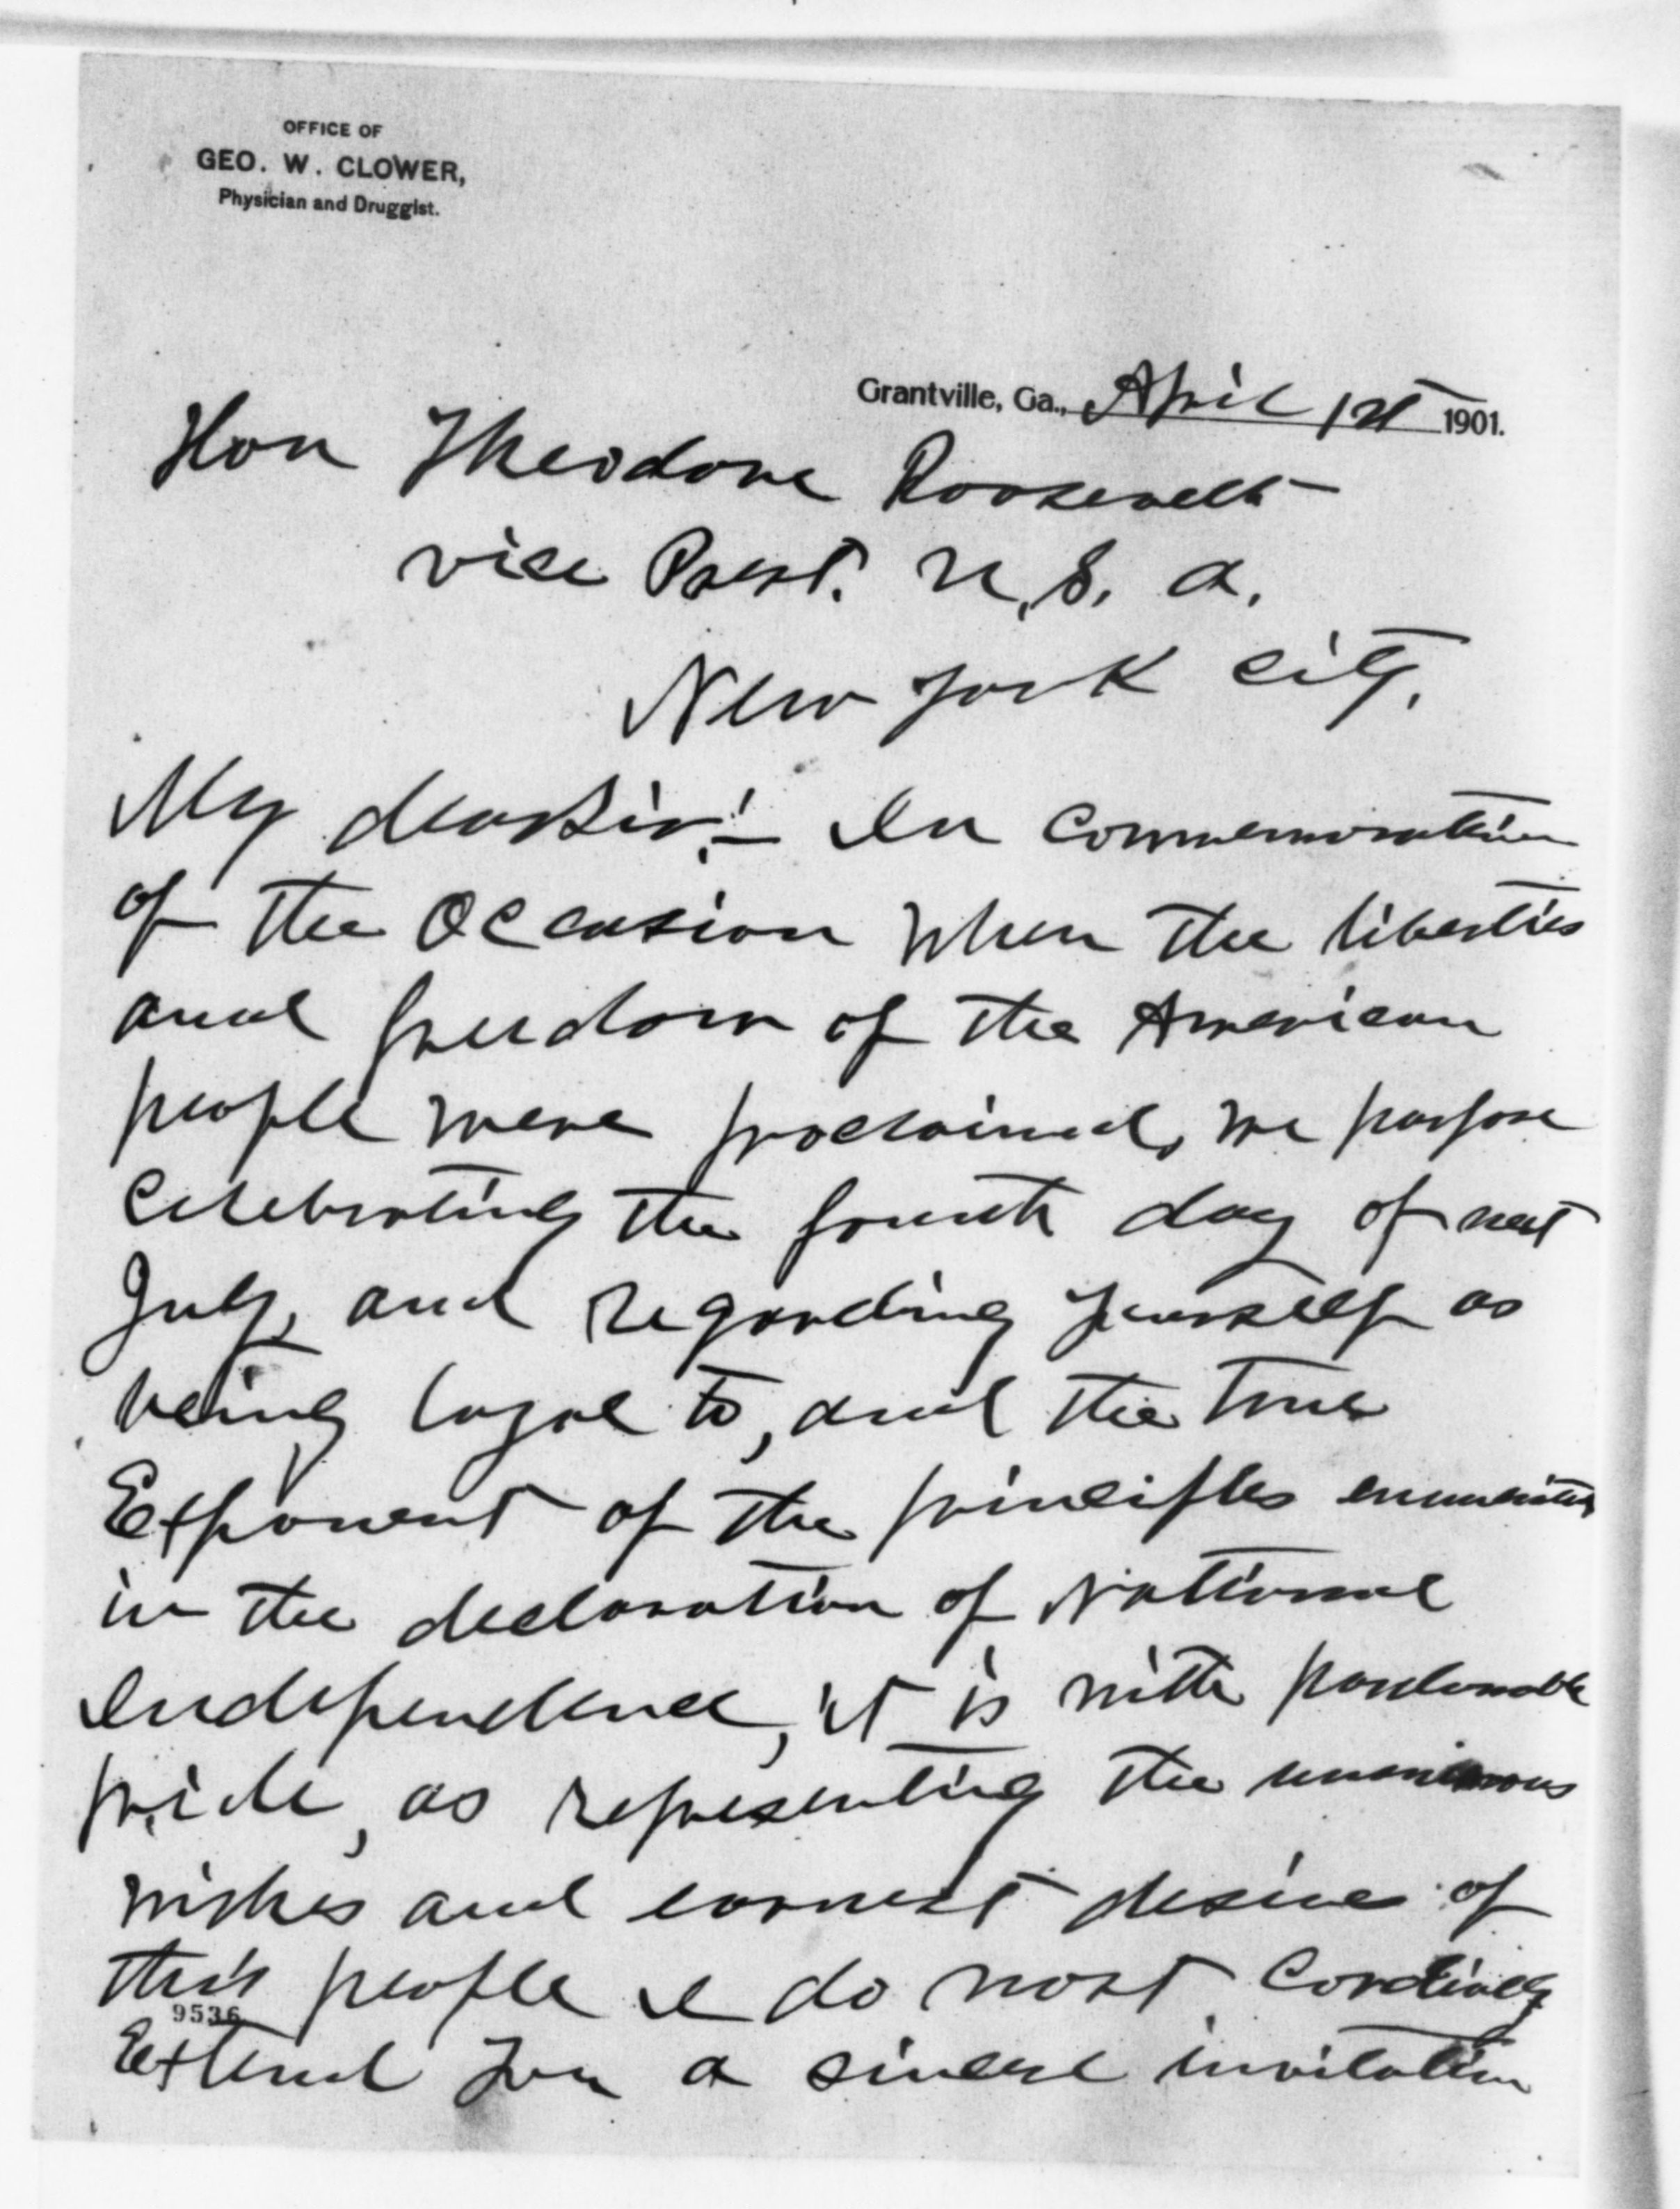 OFFICE OF
GEO. W. CLOWER,
Physician and Druggist.
Grantville, Ga., April 1st 1901.
Hon Theodore Roosevelt
vice Prest. U.S. A.
New York City.
My dear Sir:- In commemoration
of the Occasion when the liberties
and freedom of the American
people were proclaimed, we purpose
celebrating the fourth day of next
July, and regarding yourself as
being loyal to, and the true
Exponent of the principles enunciated
in the declaration of National
Independence, it is with pardonable
pride, as representing the unanimous
wishes and earnest desire of
this people I do most Cordially
9536
Extend you a sincere invitation